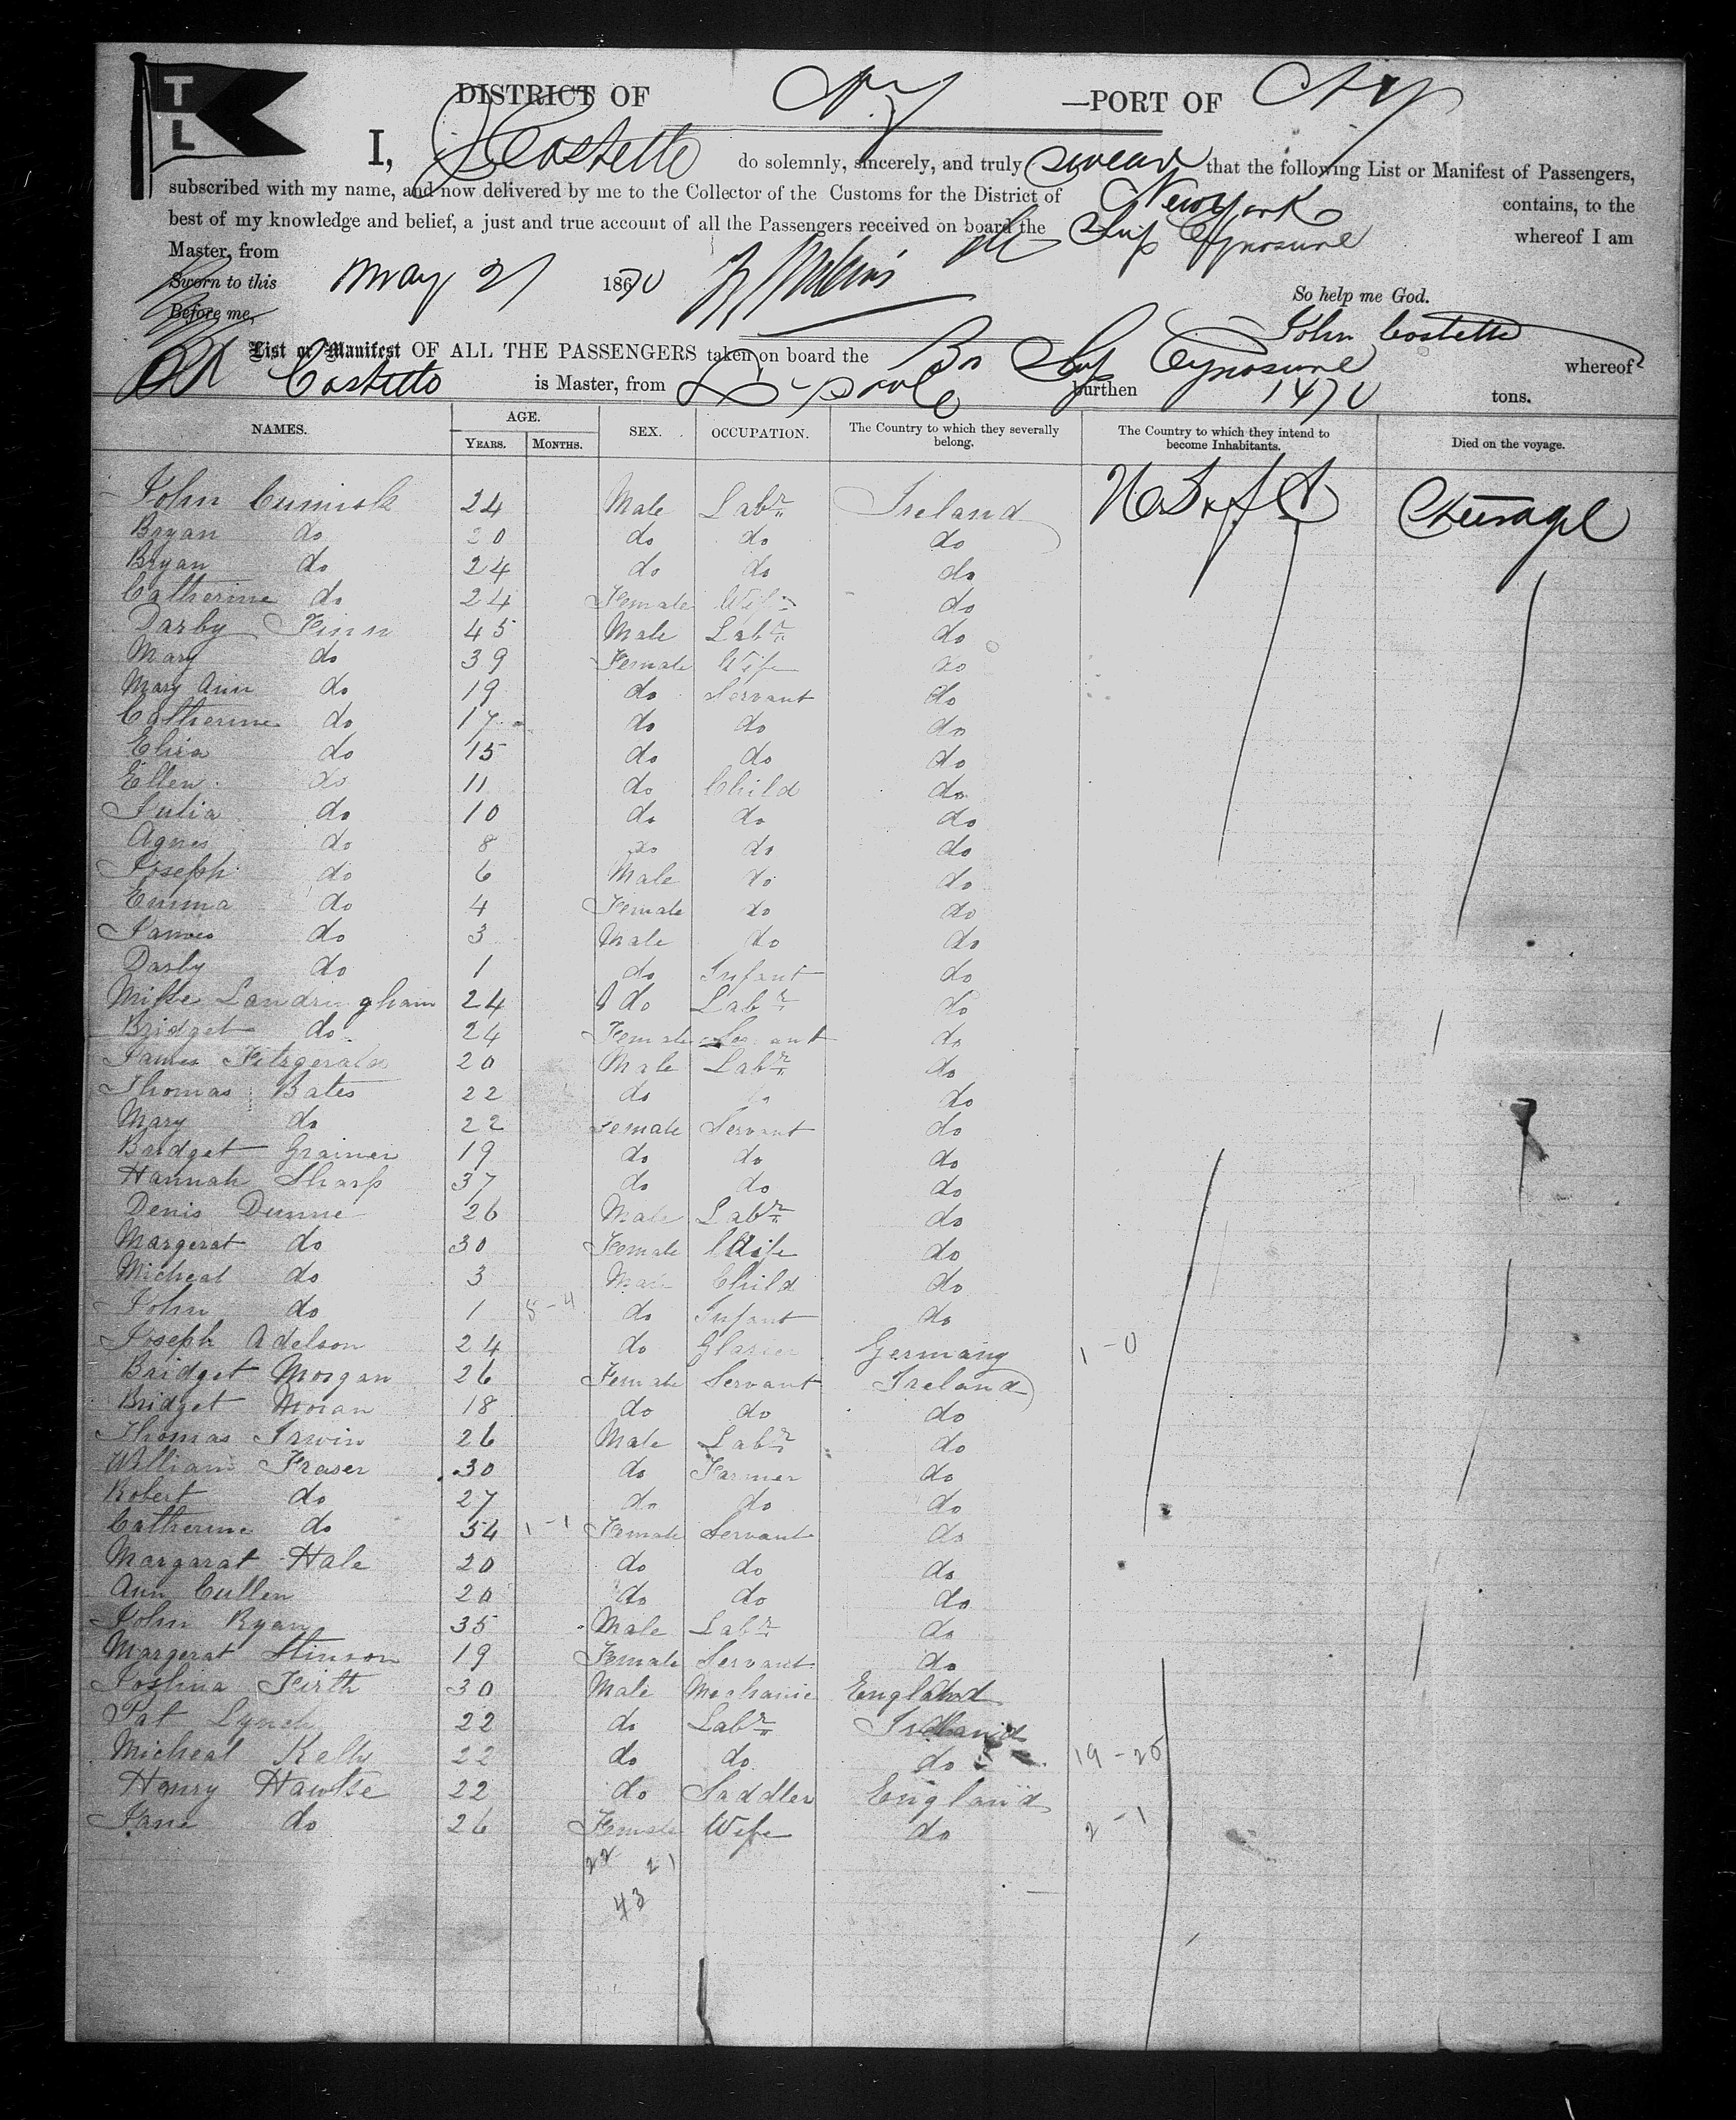 T
L
DISTRICT OF NY —PORT OF NY
I, J Costello do solemnly, sincerely, and truly swear that the following List or Manifest of Passengers,
subscribed with my name, and now delivered by me to the Collector of the Customs for the District of New York contains, to the
best of my knowledge and belief, a just and true account of all the Passengers received on board the Ship Cynosure whereof I am
Master, from
Sworn to this May 21 1870
So help me God.
Before me,
John Costello
List or Manifest OF ALL THE PASSENGERS taken on board the Br Ship Cynosure whereof
Costello is Master, from L'pool burthen 1470 tons.
NAMES. AGE. YEARS. MONTHS. SEX. OCCUPATION. The Country to which they severally belong. The Country to which they intend to become Inhabitants. Died on the voyage.
John Cumisk 24 Male Labr Ireland U.S. of A Steerage
Bryan do 20 do do do
Bryan do 24 do do do
Catherine do 24 Female Wife do
Darby Finn 45 Male Labr do
Mary do 39 Female Wife do
Mary Ann do 19 do Servant do
Catherine do 17 do do do
Eliza do 15 do do do
Ellen do 11 do Child do
Julia do 10 do do do
Agnes do 8 do do do
Joseph do 6 Male do do
Emma do 4 Female do do
James do 3 Male do do
Darby do 1 do Infant do
Mike Landringham 24 do Labr do
Bridget do 24 Female Servant do
James Fitzgerald 20 Male Labr do
Thomas Bates 22 do do do
Mary do 22 Female Servant do
Bridget Grainer 19 do do do
Hannah Sharp 37 do do do
Denis Dunne 26 Male Labr do
Margerat do 30 Female Wife do
Micheal do 3 Male Child do
John do 1 5-4 do Infant do
Joseph Adelson 24 do Glasier Germany 1-0
Bridget Morgan 26 Female Servant Ireland
Bridget Moran 18 do do do
Thomas Irwin 26 Male Labr do
William Fraser 30 do Farmer do
Robert do 27 do do do
Catherine do 54 1-1 Female Servant do
Margarat Hale 20 do do do
Ann Cullen 20 do do do
John Ryan 35 Male Labr do
Margerat Stinson 19 Female Servant do
Joshua Firth 30 Male Mechanic England
Pat Lynch 22 do Labr Ireland
Micheal Kelly 22 do do do 19-25
Henry Hawke 22 do Saddler England
Jane do 26 Female Wife do 2-1
22 21
43